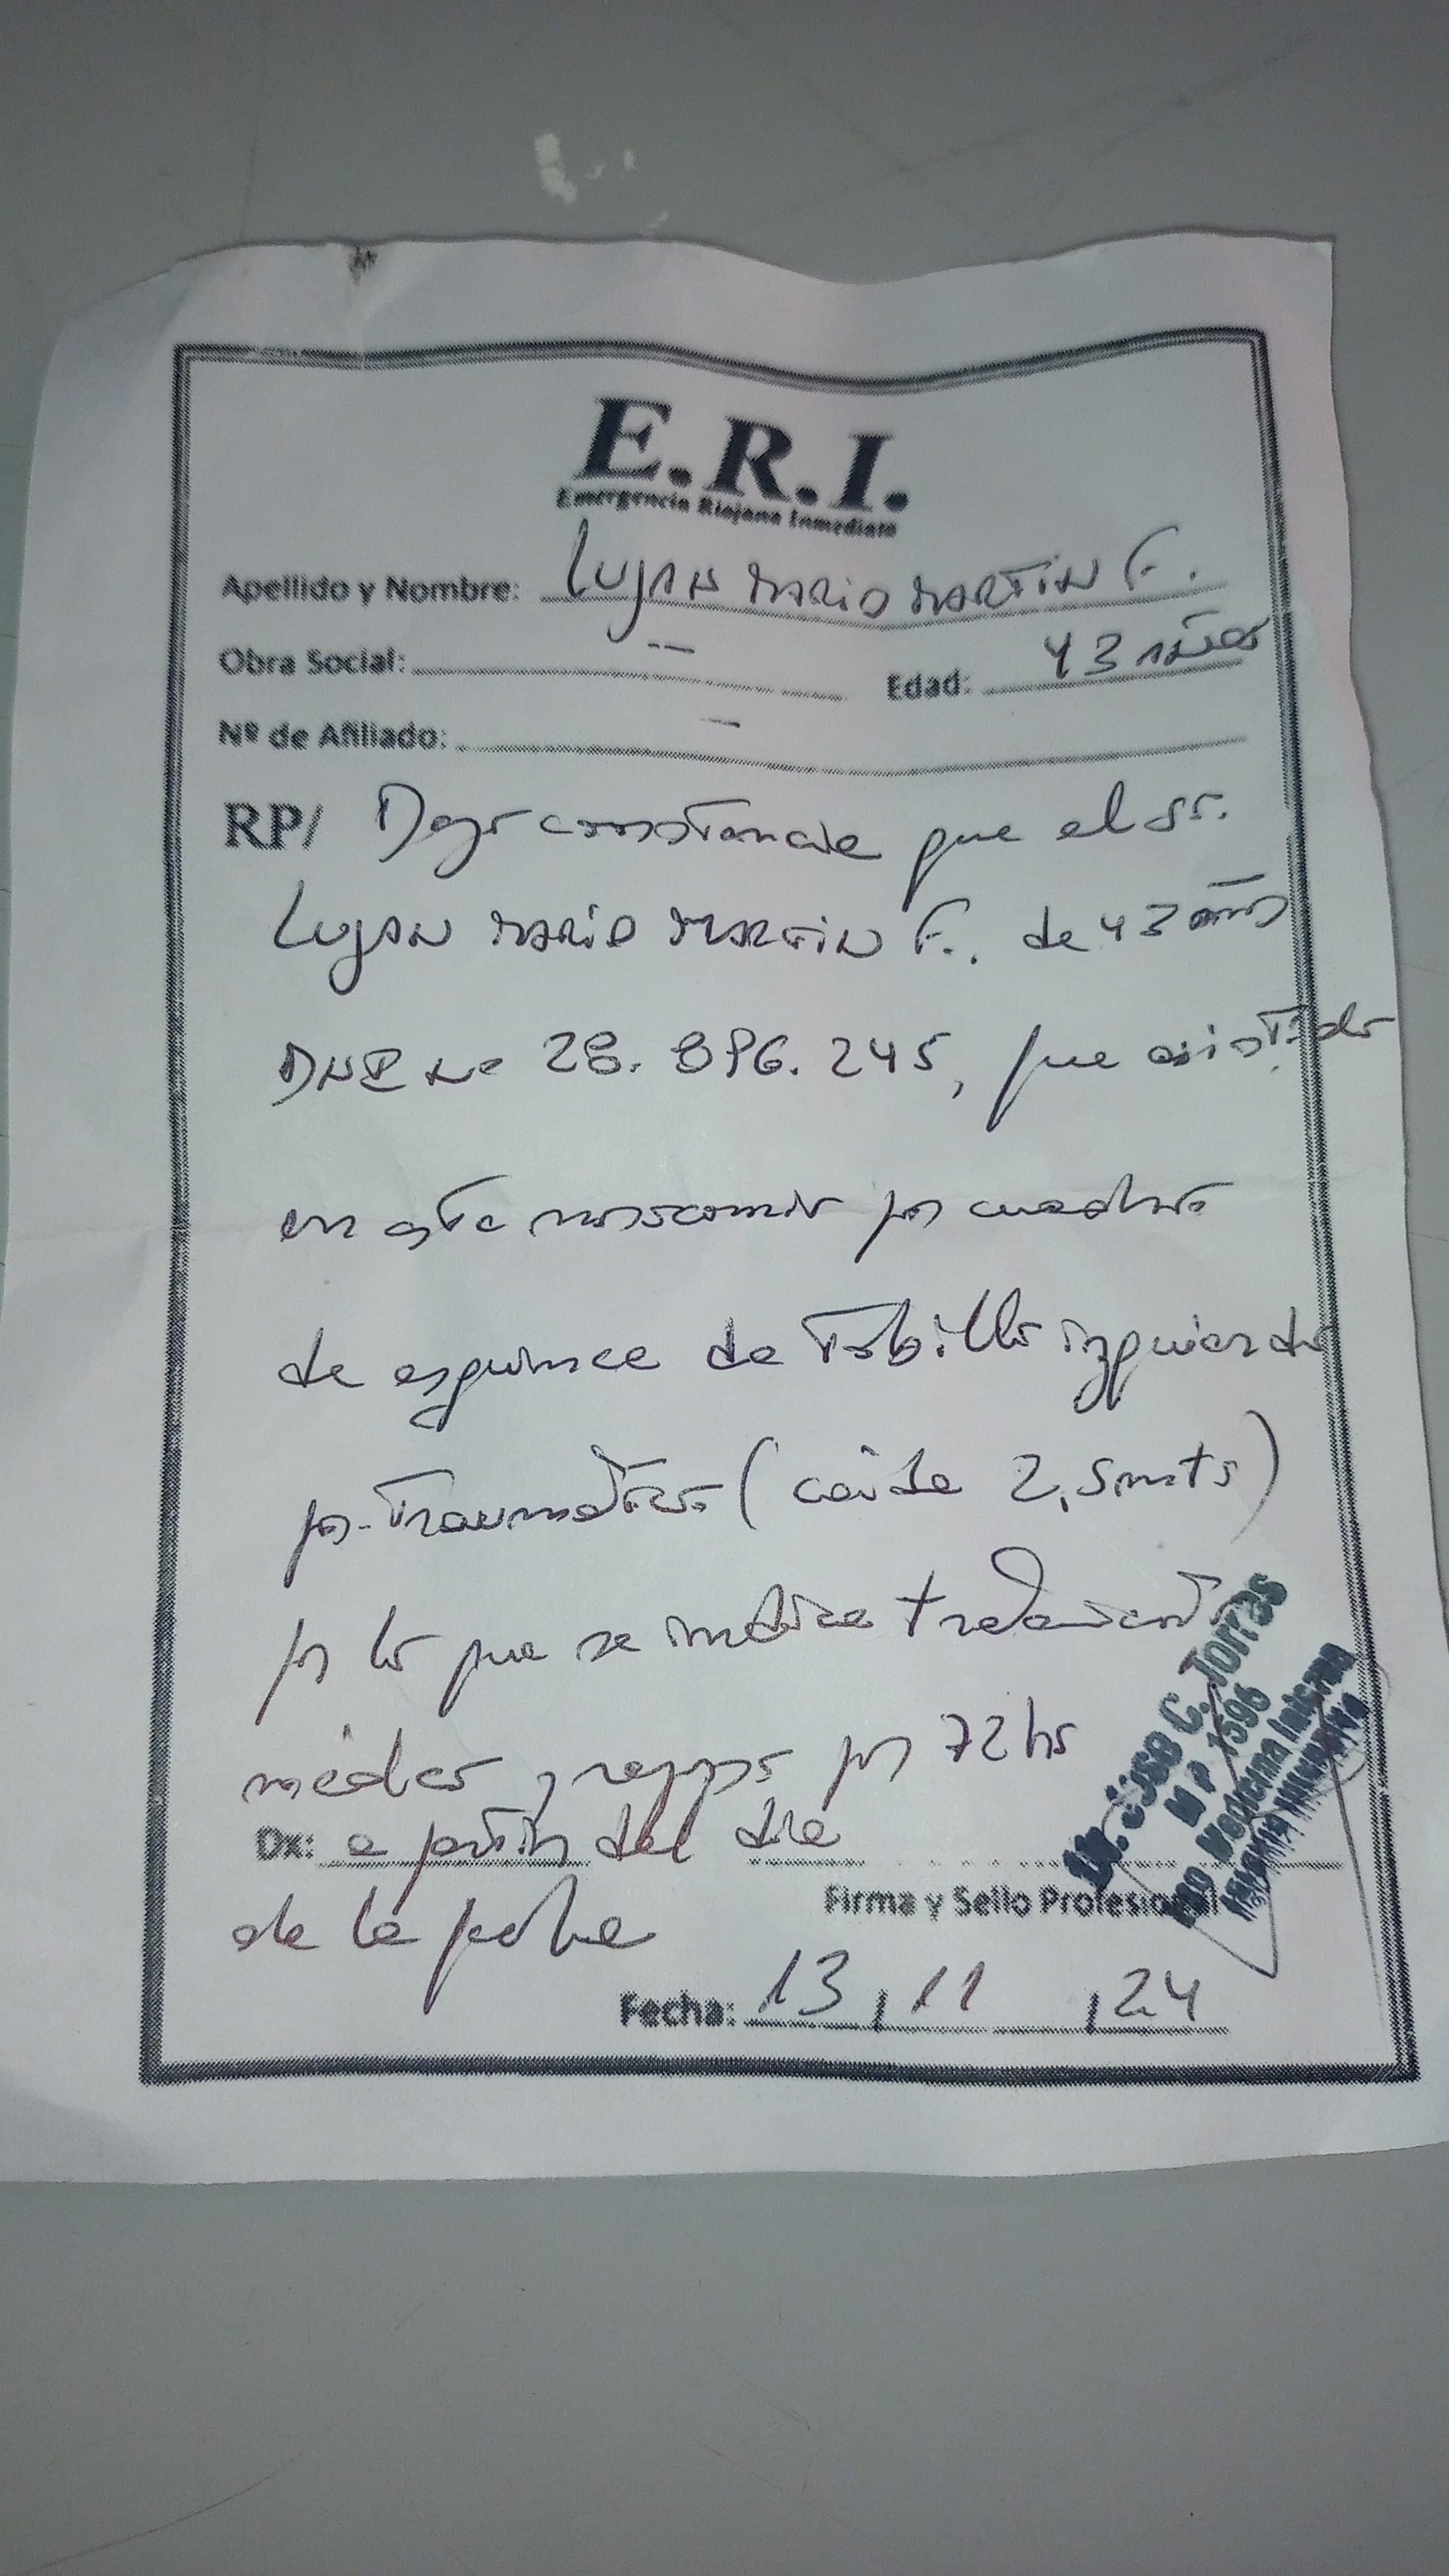 E.R.I.
Emergencia Riojana Inmediata
Apellido y Nombre: LUJAN MARIO MARTIN F.
Obra Social: -- Edad: 43 AÑOS
Nº de Afiliado: -
RP/ Dejo constancia que el sr.
LUJAN MARIO MARTIN F. de 43 años
DNI Nº 28.896.245, fue asistido
en este nosocomio por cuadro
de esguince de tobillo izquierdo
pos-traumático (caída 2,5 mts)
por lo que se indica tratamiento
médico y reposo por 72 hs
Dx: a partir del día
de la fecha
Dr. José C. Torras
M P 1596
Medicina
Firma y Sello Profesional
Fecha: 13, 11, 24